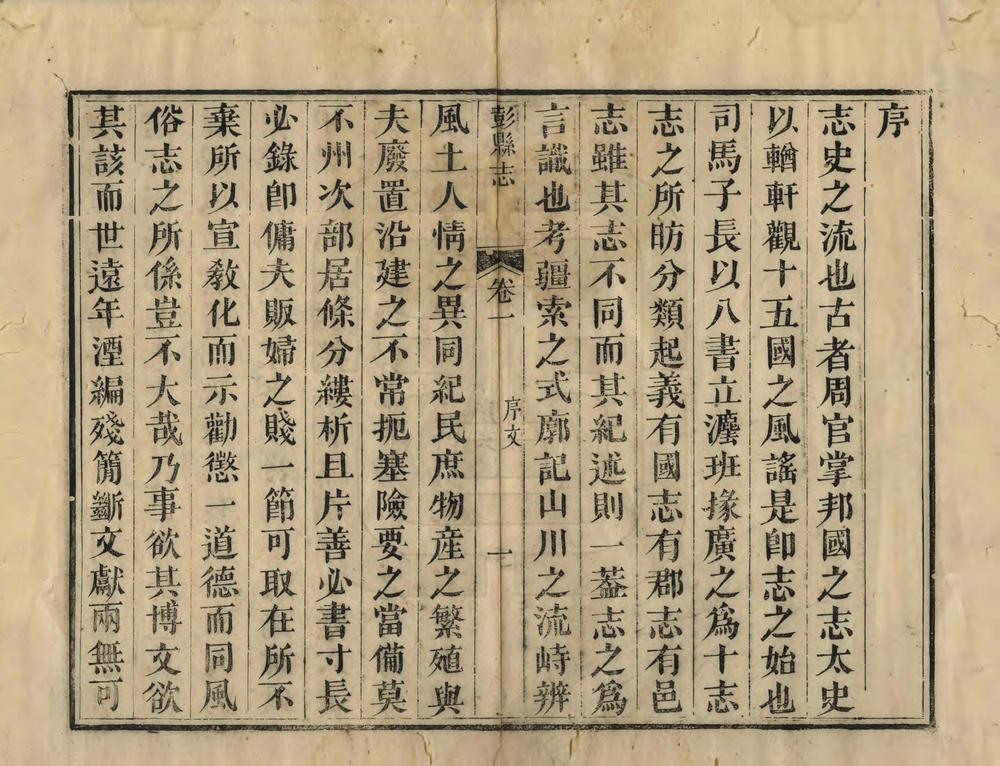 序
志史之流也古者周官掌邦國之志太史
以輶軒觀十五國之風謠是卽志之始也
司馬子長以八書立瀍班掾廣之爲十志
志之所昉分類起義有國志有郡志有邑
志雖其志不同而其紀述則一葢志之爲
言識也考疆索之式廓記山川之流峙辨
彭縣志
卷一
序文
一
風土人情之異同紀民庶物産之繁殖與
夫廢置沿建之不常扼塞險要之當備莫
不州次部居條分縷析且片善必書寸長
必錄卽傭夫販婦之賤一節可取在所不
棄所以宣敎化而示勸懲一道德而同風
俗志之所係豈不大哉乃事欲其博文欲
其該而世遠年湮編殘簡斷文獻兩無可